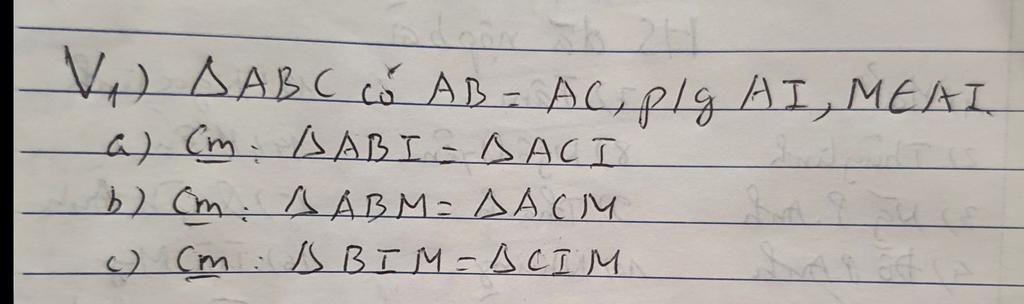 V₁) ΔABC có AB = AC, p/g AI, M∈AI.
a) Cm: ΔABI = ΔACI
b) Cm: ΔABM = ΔACM
c) Cm: ΔBIM = ΔCIM